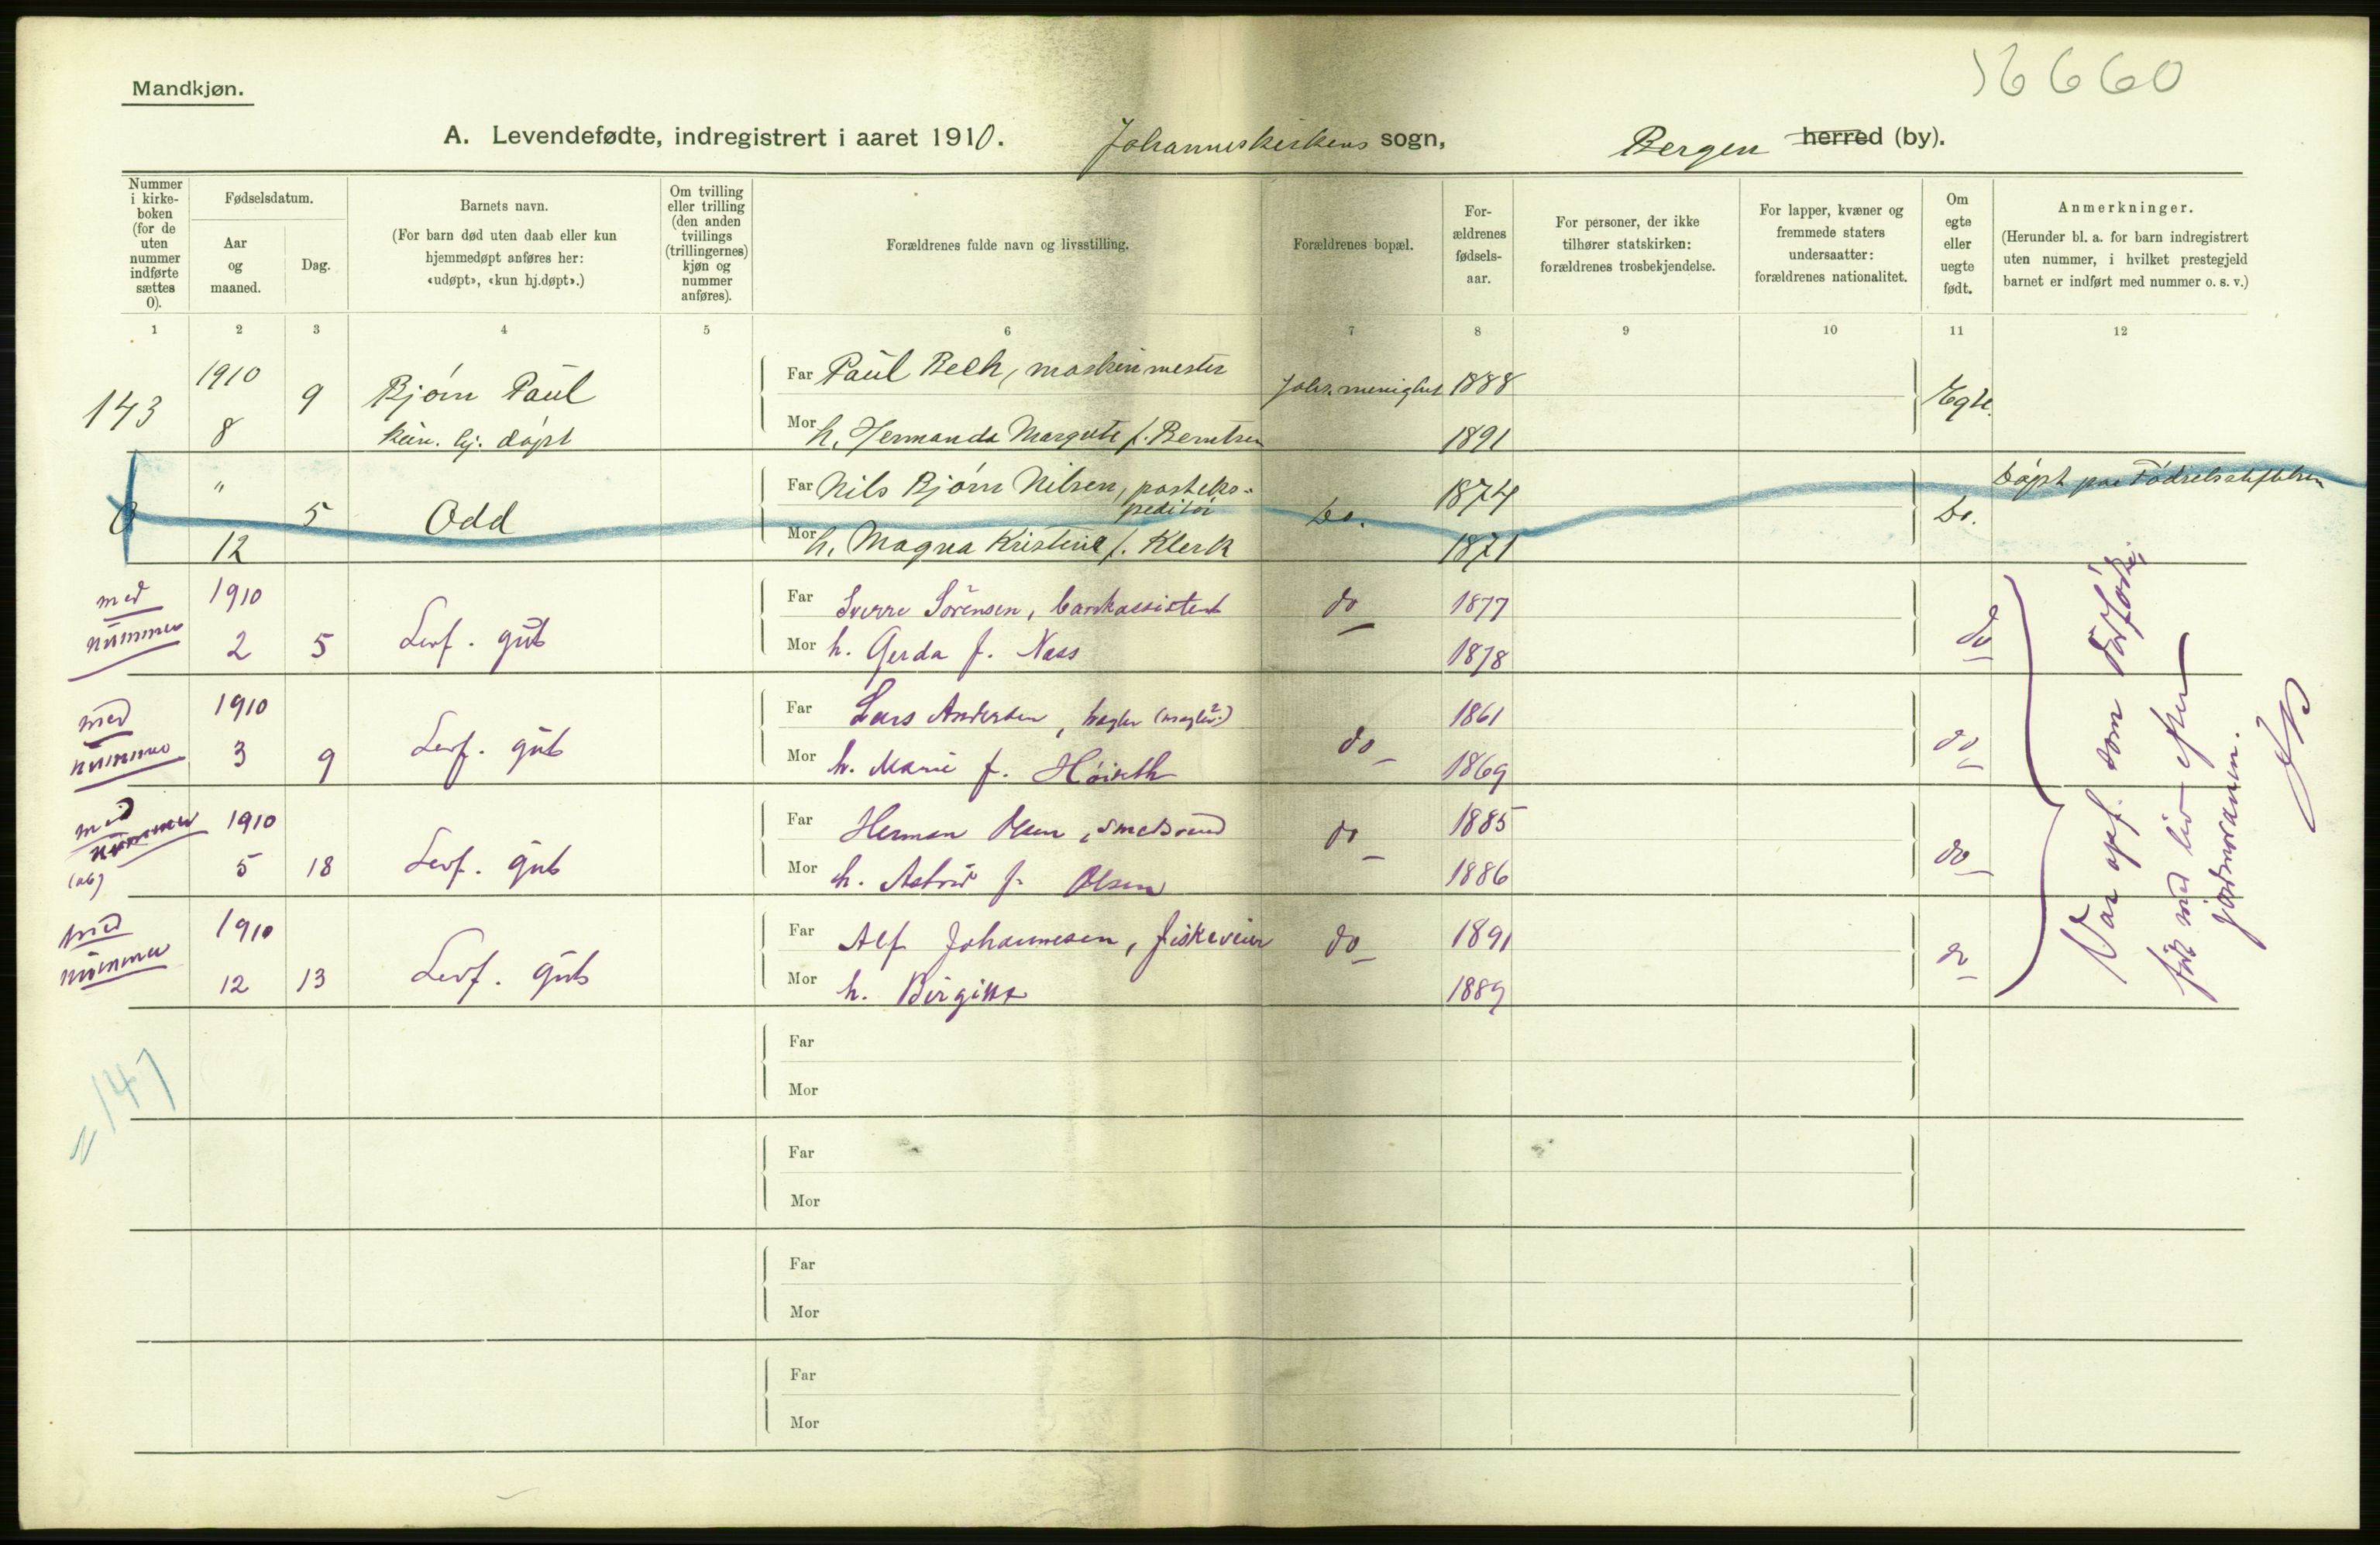 Mandkjøn.
16660
A. Levendefødte, indregistrert i aaret 1910. Johanneskirkens sogn, Bergen herred (by).
Nummer i kirke-boken (for de uten nummer indførte sættes 0).
Fødselsdatum.
Aar og maaned.
Dag.
Barnets navn.
(For barn død uten daab eller kun hjemmedøpt anføres her: «udøpt», «kun hj.døpt».)
Om tvilling eller trilling (den anden tvillings (trillingernes) kjøn og nummer anføres).
Forældrenes fulde navn og livsstilling.
Forældrenes bopæl.
For-ældrenes fødsels-aar.
For personer, der ikke tilhører statskirken: forældrenes trosbekjendelse.
For lapper, kvæner og fremmede staters undersaatter: forældrenes nationalitet.
Om egte eller uegte født.
Anmerkninger.
(Herunder bl. a. for barn indregistrert uten nummer, i hvilket prestegjeld barnet er indført med nummer o. s. v.)
1 2 3 4 5 6 7 8 9 10 11 12
143 1910 8 9 Bjørn Paul
kun. hj. døpt
Far Paul Bech, maskinmester Joh. menighet 1888 Egte.
Mor h. Hermanda Margrete f. Berntsen 1891
0 " 12 5 Odd
Far Nils Bjørn Nilsen, postekspeditør Do. 1874 Do. Døpt paa Fødselsstiftelsen
Mor h. Magna Kristine f. Klerk 1871
med nummer 1910 2 5 Levf. gut
Far Sverre Sörensen, bankassistent do 1877 do
Mor h. Gerda f. Næss 1878
med nummer 1910 3 9 Levf. gut
Far Lars Andersen, do 1861 do
Mor h. Marie f. Høiseth 1869
med nummer 1910 5 18 Levf. gut
Far Herman Olsen, smedsvend do 1885 do
Mor h. Astrid f. Olsen 1886
med nummer 1910 12 13 Levf. gut
Far Alf Johannesen, fiskeveier do 1891 do
Mor h. Birgitta 1889
Var opf. som dødfødt,
født med liv efter
jordmoranm.
147
Far
Mor
Far
Mor
Far
Mor
Far
Mor